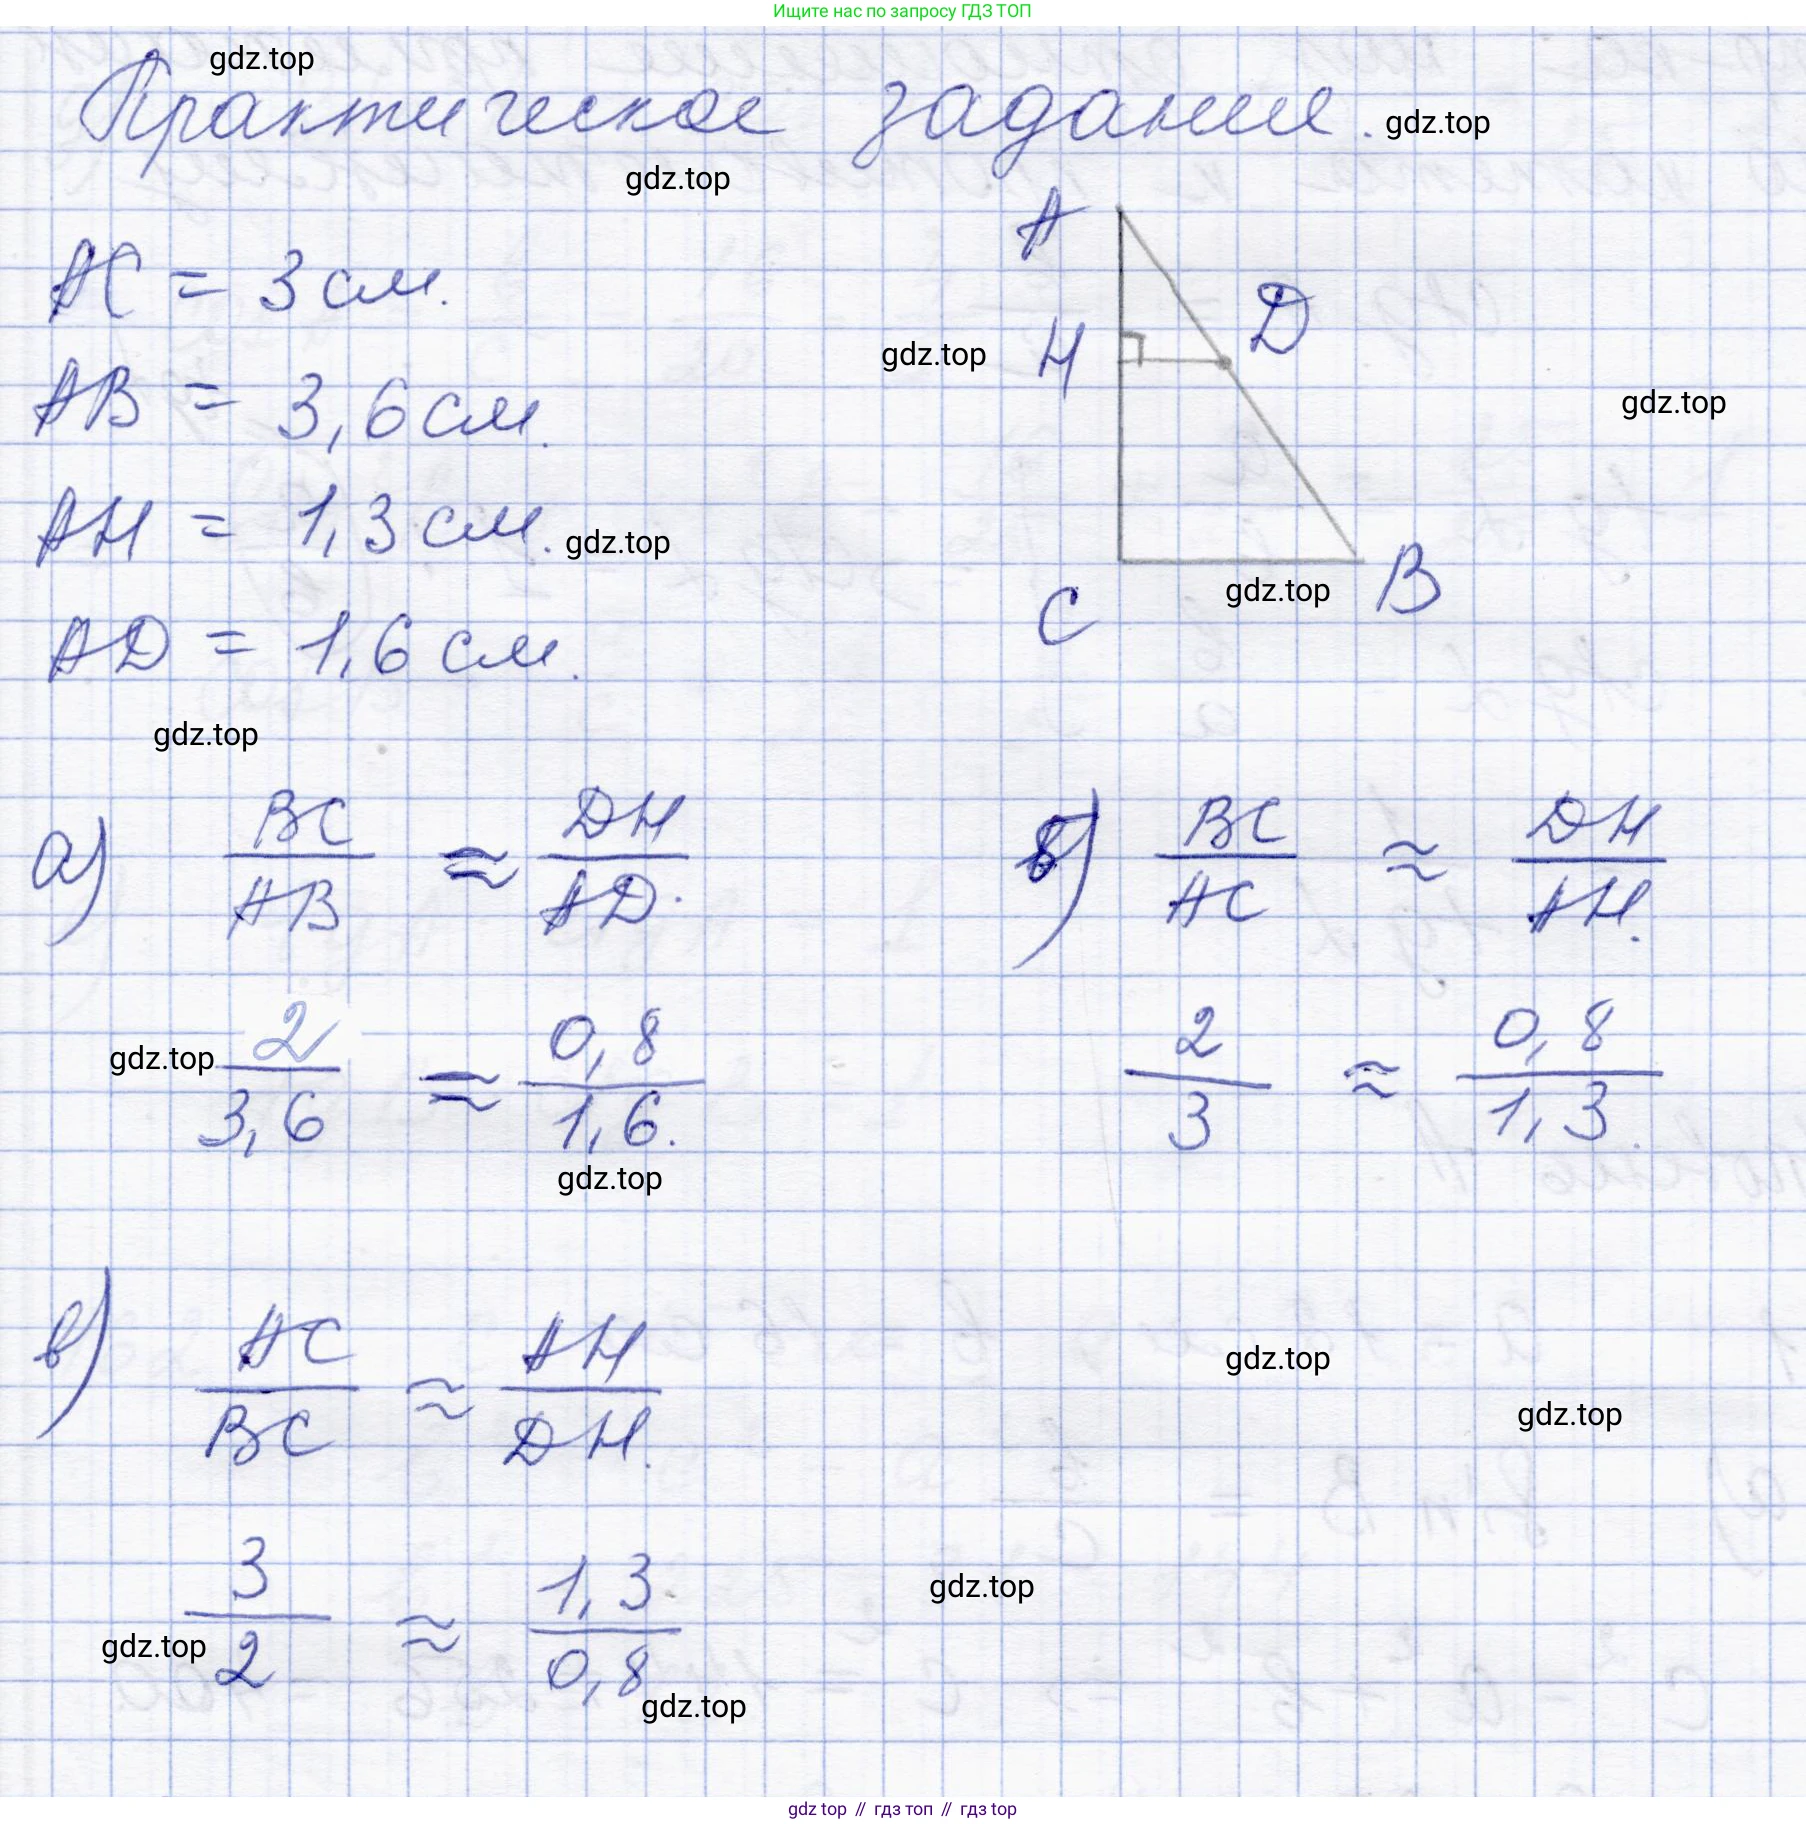 Ищите нас по запросу ГДЗ ТОП
gdz.top
Практическое задание. gdz.top
gdz.top
A
AC = 3 см.
D
H
gdz.top
AB = 3,6 см.
gdz.top
AH = 1,3 см. gdz.top
C
gdz.top
B
AD = 1,6 см.
gdz.top
а) BC/AB ≈ DH/AD. б) BC/AC ≈ DH/AH.
gdz.top 2/3,6 ≈ 0,8/1,6. 2/3 ≈ 0,8/1,3.
gdz.top
в) AC/BC ≈ AH/DH.
gdz.top
gdz.top
3/2 ≈ 1,3/0,8
gdz.top
gdz.top
gdz.top
gdz top // гдз топ // гдз top